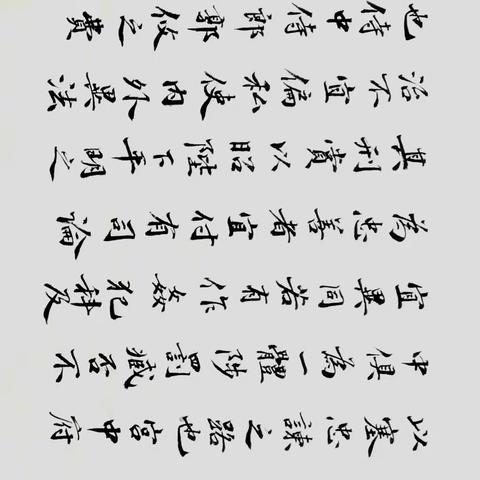 以塞忠諫之路也宮中府
中俱為一體陟罰臧否不
宜異同若有作姦犯科及
為忠善者宜付有司論
其刑賞以昭陛下平明之
治不宜偏私使內外異法
也侍中侍郎郭攸之費